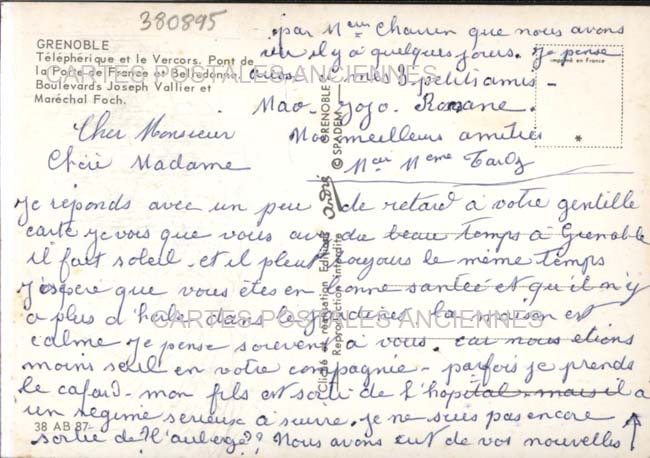 380895
GRENOBLE
Téléphérique et le Vercors. Pont de
la Porte de France et Belledonne.
Boulevards Joseph Vallier et
Maréchal Foch.
imprimé en France
CARTES POSTALES ANCIENNES
Cher Monsieur
Chère Madame
Je réponds avec un peu de retard à votre gentille
carte je vois que vous avez du beau temps à Grenoble
il fait soleil et il pleut toujours le même temps
J'éspère que vous êtes en bonne santée et qu'il n'y
a plus d'herbe dans le jardin. la maison est
CARTES POSTALES ANCIENNES
calme je pense souvent à vous. car nous étions
moins seul en votre compagnie - parfois je prends
le cafard - mon fils est sorti de l'hopital mais il a
un régime serieux à suivre. je ne suis pas encore
sortie de l'auberge?? Nous avons eut de vos nouvelles
par Mr Charren que nous avons
vu il y a quelques jours. Je pense
aussi à mes 3 petits amis -
Mao - Jojo - Roxane.
Nos meilleurs amitiés
Mr Mme Tardy
38 AB 87
Cliché et réalisation Editions André GRENOBLE
Reproduction interdite © SPADEM